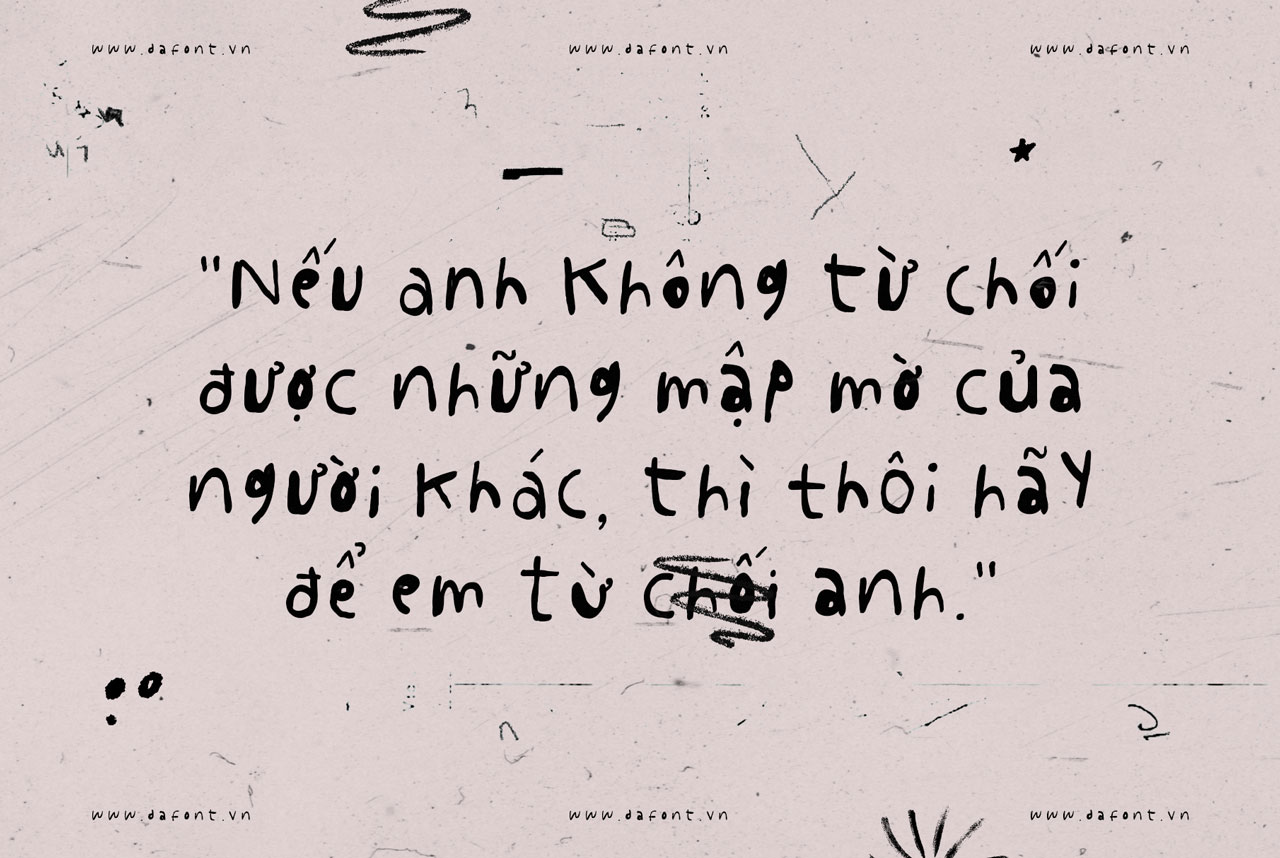 www.dafont.vn www.dafont.vn www.dafont.vn
"Nếu anh không từ chối
được những mập mờ của
người khác, thì thôi hãy
để em từ chối anh."
www.dafont.vn www.dafont.vn www.dafont.vn